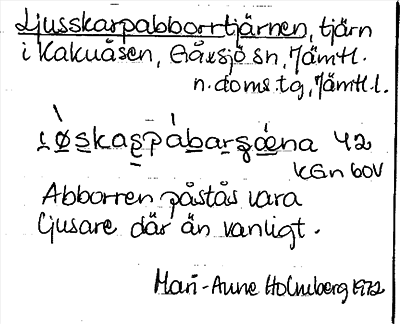 Ljusskarpabborrtjärnen, tjärn
i Kakuåsen, Gåxsjö sn, Jämtl.
n. doms.tg, Jämtl. l.
Abborren påstås vara
ljusare där än vanligt.
Mari-Anne Holmberg 1972